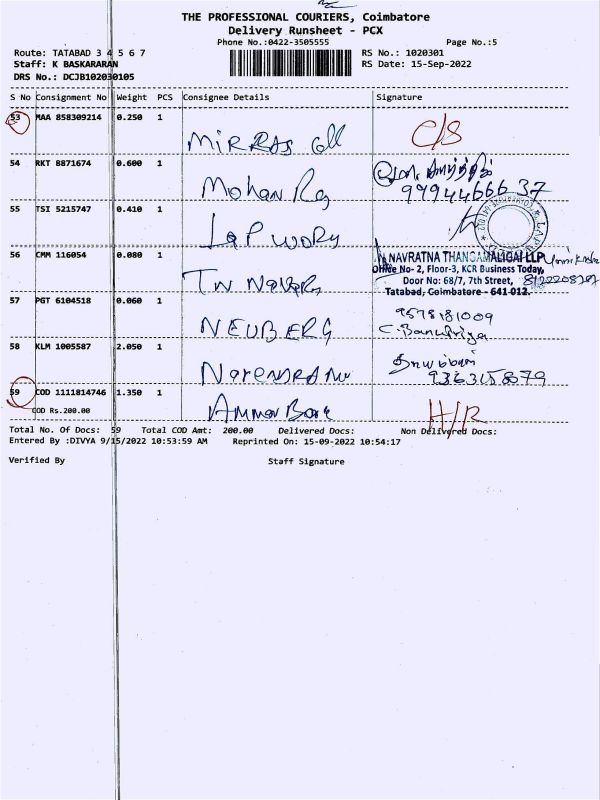 THE PROFESSIONAL COURIERS, Coimbatore
Delivery Runsheet - PCX
Phone No.:0422-3505555 Page No.:5
Route: TATABAD 3 4 5 6 7 RS No.: 1020301
Staff: K BASKARARAN RS Date: 15-Sep-2022
DRS No.: DCJB102030105
S No Consignment No Weight PCS Consignee Details Signature
53 MAA 858309214 0.250 1
C/S
54 RKT 8871674 0.600 1
Mohan Rg
9994466637
55 TSI 5215747 0.410 1
56 CMM 116054 0.080 1
NAVRATNA THANGAMALIGAI LLP
Office No- 2, Floor-3, KCR Business Today,
Door No: 68/7, 7th Street,
Tatabad, Coimbatore - 641 012.
57 PGT 6104518 0.060 1
9578181009
NEUBERG C. Banupriya
58 KLM 1005587 2.050 1
59 COD 1111814746 1.350 1
COD Rs.200.00
H/R
Total No. Of Docs: 59 Total COD Amt: 200.00 Delivered Docs: Non Delivered Docs:
Entered By :DIVYA 9/15/2022 10:53:59 AM Reprinted On: 15-09-2022 10:54:17
Verified By Staff Signature